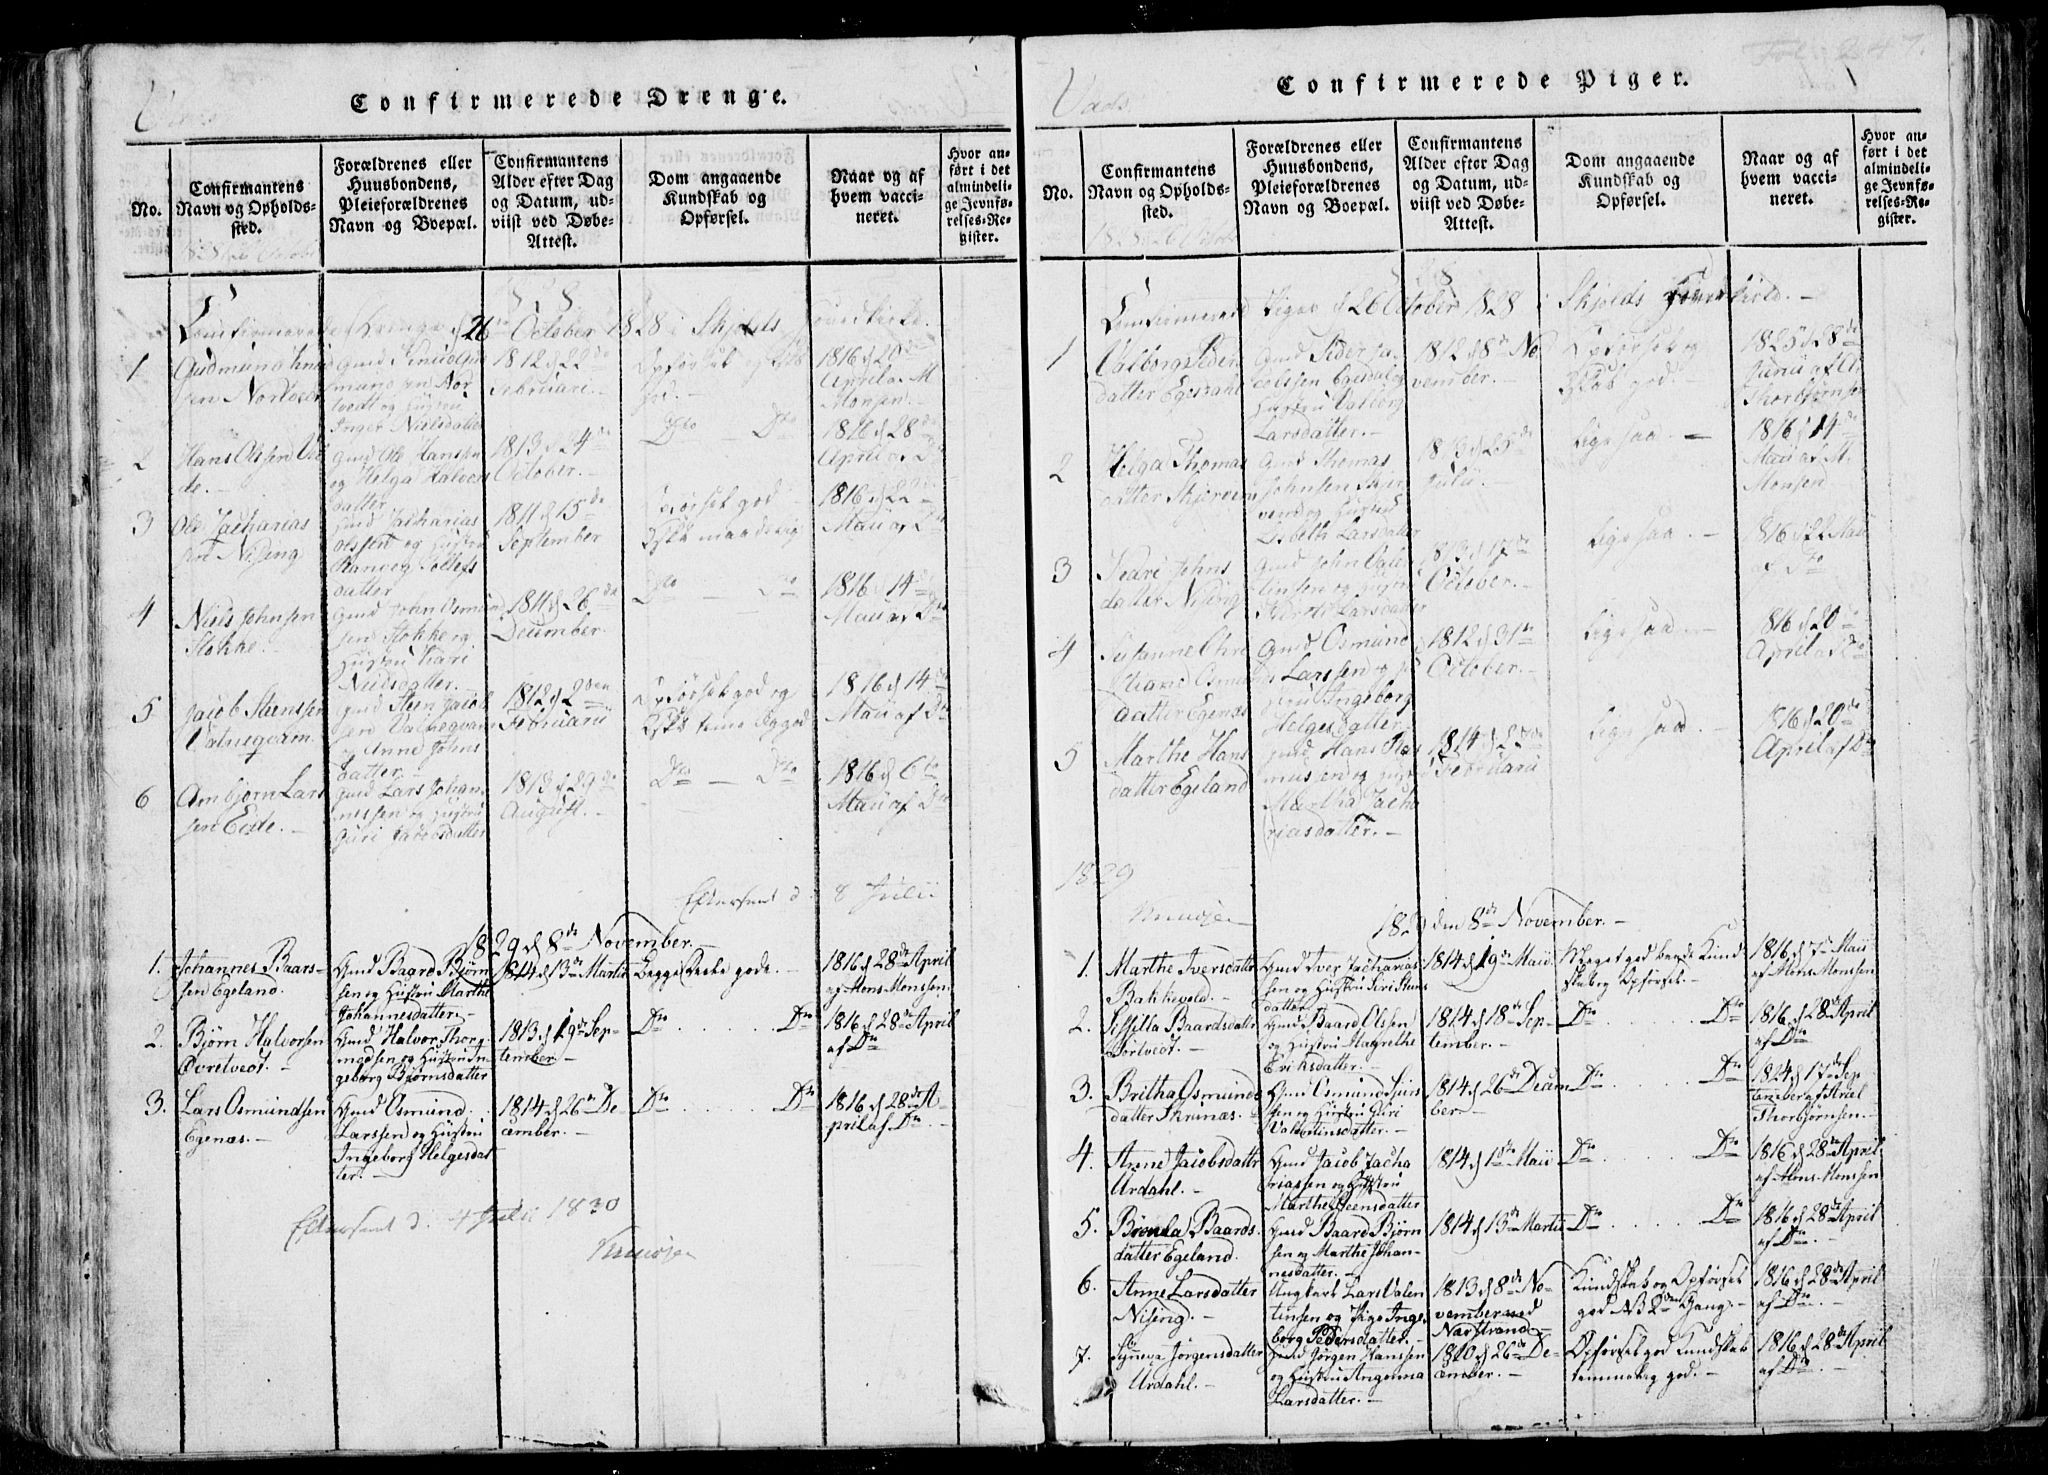 Confirmerede Drenge.
No.
Confirmantens Navn og Opholdssted.
Forældrenes eller Huusbondens, Pleieforældrenes Navn og Boepæl.
Confirmantens Alder efter Dag og Datum, udviist ved Døbe-Attest.
Dom angaaende Kundskab og Opførsel.
Naar og af hvem vaccineret.
Hvor anført i det almindelige Jevnførelses-Register.
Confirmerede Drenge d 26 October 1828 i Skjolds Hovedkirke.
1
Gudmund Knud
sen Nortvedt
Gmd Knud Gud
mundsen Nor
tvedt og Hustru
Inger Nielsdatter
1812 d 22de
Februari.
Opførsel og Kskb
god.
1816 d 20de
April af M
Monsen.
2
Hans Olssen
Gmd Ole Hanssen
og Helga Halvors
datter
1813 d 24de
October.
Do — Do
1816 d 28de
April af Do
3
Ole Zacharias
sen Nising
Gmd Zacharias
Olssen og Hustru
Ranveg Tollefs
datter
1811 d 15de
September
Opførsel god
Kskb maadelig
1816 d 22de
Maii af Do
4
Niels Johnsen
Stokke.
Gmd John Osmund
sen Stokke og
Hustru Kari
Nielsdatter.
1811 d 26de
December
Do — Do
1816 d 14de
Maii af Do
5
Jacob Steensen
Vatneqvam
Gmd Steen Jacob
sen Vatneqvam
og Anne Johns
datter
1812 d 2den
Februarii
Opførsel god og
Kskb temelig god
1816 d 14de
Maii af Do
6
Ambjørn Lars
sen Eide.
Gmd Lars Johan
nessen og Hustru
Guri Jacobsdatter
1813 d 29de
August.
Do — Do
1816 d 6te
Maii af Do
Efterseet d. 8 Julii
1829 d 8de November.
1.
Johannes Baars-
sen Egeland.
Gmd Baard Bjørn
sen og Hustru Marthe
Johannesdatter
1814 d 13de Martii
Begge Deele gode.
1816 d 28de April
af Mons Monssen.
2.
Bjørn Halvorsen
Øvretvedt.
Gmd Halvor Thorg
medsen og Hustru In-
geborg Bjørnsdatter
1813 d 19de Sep-
tember
Do . . . . Do
1816 d 28de April
af Do
3.
Lars Osmundsen
Egenæs.
Gmd Osmund
Larssen og Hustru
Ingeborg Helgesdat
ter.
1814 d 26de De
cember.
Do . . . . Do
1816 d 28de A-
pril af Do
Efterseet d. 4 Julii 1830
Confirmerede Piger.
Fol. 247.
No.
Confirmantens Navn og Opholdssted.
Forældrenes eller Huusbondens, Pleieforældrenes Navn og Boepæl.
Confirmantens Alder efter Dag og Datum, udviist ved Døbe-Attest.
Dom angaaende Kundskab og Opførsel.
Naar og af hvem vaccineret.
Hvor anført i det almindelige Jevnførelses-Register.
Confirmerede Piger d 26 October 1828 i Skjolds Hovedkirke.
1
Valborg Peder
datter Egesdahl
Gmd Peder Ja-
cobssen Egesdal og
Hustru Valborg
Larsdatter.
1812 d 8de No
vember.
Opførsel og
Kskb god.
1825 d 28de
Junii af A
Thorbjørnsen
2
Helga Thomas
datter Skjerven
Gmd Thomas
Johnsen Skjer
vend og Hustrue
Lisbeth Larsdatter
1813 d 25de
Julii.
Ligesaa.
1816 d 14de
Maii af M.
Monsen
3
Kari Johns
datter Nising
Gmd John Valen
tinsen og Hustru
Larsdatter
1813 d 17de
October.
Ligesaa.
1816 d 22 Maii
af Do
4
Susanne Chri
stiane Osmunds
datter Egenæs
Gmd Osmund
Larssen og Hu
stru Ingeborg
Helgesdatter
1812 d 31te
October.
Ligesaa
1816 d 20de
April af Do
5
Marthe Hans
datter Egeland
Gmd Hans Ras
mussen og Hustru
Martha Zacha
riasdatter.
1814 d
Februarii
Ligesaa.
1816 d 20de
April af Do
1829
1829 den 8de November.
1.
Marthe Iversdatter
Bakkevold.
Gmd Iver Zacharias
sen og Hustru Siri Steens
datter
1814 d 19de Maii
Meget god baade Kund
skab og Opførsel.
1816 d 7de Maii
af Mons Monssen
2.
Sissilla Baardsdatter
Tortvedt.
Gmd Baard Olssen
og Hustru Magrethe
Eriksdatter.
1814 d 18de Sep-
tember.
Do . . . . Do
1816 d 28de April
af Do
3.
Britha Osmunds
datter Skrinæs.
Gmd Osmund
sen og Hustru Guri
Valentinsdatter.
1814 d 26de Decem
ber
Do . . . . Do
1824 d 17de Sep
tember af Ariel
Thorbjørnsen.
4.
Anne Jacobsdatter
Urdahl.
Gmd Jacob Zacha
riassen og Hustru
Marthe Steensdatter
1814 d 1ste Maii
Do . . . . Do
1816 d 28de April
af Mons Monssen
5.
Brenla Baards
datter Egeland.
Gmd Baard Bjørn
sen og Marthe Johan-
nesdatter.
1814 d 13de Martii
Do . . . . Do
1816 d 28de April
af Do
6.
Anne Larsdatter
Nising.
Ungkarl Lars Valen
tinsen og Pige Inge-
borg Pedersdatter.
1813 d 8de No-
vember ved
Nærstrand
Kundskab og Opførsel
god NB 2den Gang.
1816 d 28de April
af Do
7.
Synneva Jørgensdatter
Urdahl.
Gmd Jørgen Hanssen
og Hustru Angenna
Larsdatter.
1810 d 26de De-
cember.
Opførsel god Kundskab
temmelig god.
1816 d 28de April
af Do